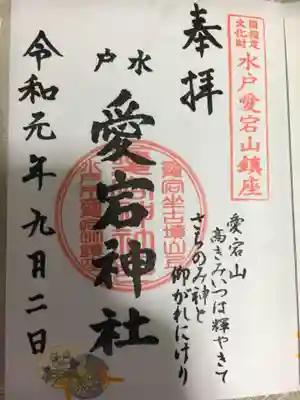 国指定
文化財
水戸愛宕山鎮座
奉拝
水戸
愛宕神社
愛宕山
高きみいつは輝やきて
さちのみ神と
仰がれにけり
令和元年九月二日